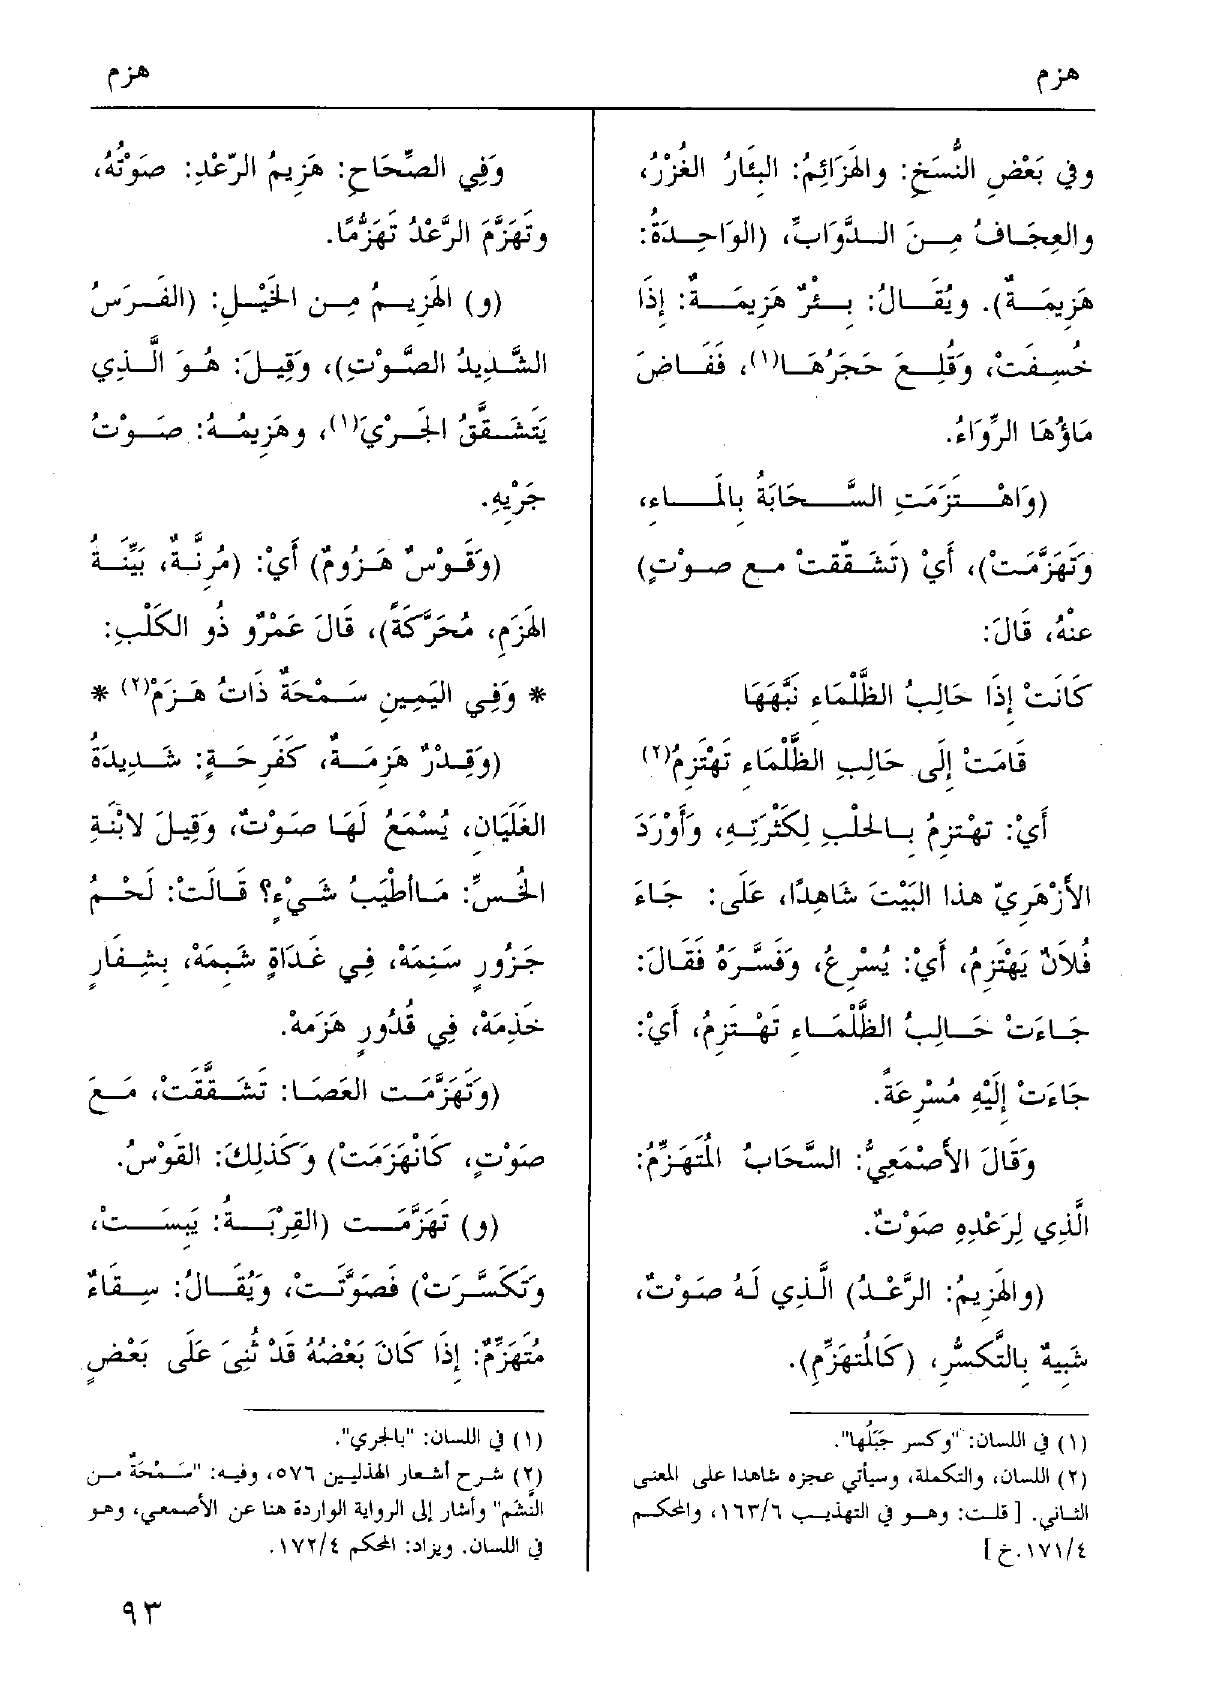 هزم
هزم
وفي بَعْضِ النُّسَخِ: والهَزَائِمُ: البِئَارُ الغُزْرُ،
والعِجَافُ مِنَ الدَّوَابِّ، (الوَاحِدَةُ:
هَزِيمَةٌ). ويُقَالُ: بِئْرٌ هَزِيمَةٌ: إذَا
خُسِفَتْ، وَقُلِعَ حَجَرُهَا(١)، فَفَاضَ
مَاؤُهَا الرِّوَاءُ.
(وَاهْتَزَمَتِ السَّحَابَةُ بِالمَاءِ،
وَتَهَزَّمَتْ)، أَيْ (تَشَقَّقت مع صوتٍ)
عنْهُ، قَالَ:
كَانَتْ إذَا حَالِبُ الظَّلْمَاءِ نَبَّهَهَا
قَامَتْ إلَى حَالِبِ الظَّلْمَاءِ تَهْتَزِمُ(٢)
أَيْ: تهْتزِمُ بِالحَلْبِ لِكَثْرَتِهِ، وَأَوْرَدَ
الأَزْهَرِيّ هذا البَيْتَ شَاهِدًا، عَلَى: جَاءَ
فُلاَنٌ يَهْتَزِمُ، أَيْ: يُسْرِعُ، وَفَسَّرَهُ فَقَالَ:
جَاءَتْ حَالِبُ الظَّلْمَاءِ تَهْتَزِمُ، أَيْ:
جَاءَتْ إلَيْهِ مُسْرِعَةً.
وَقَالَ الأَصْمَعِيُّ: السَّحَابُ المُتَهَزِّمُ:
الَّذِي لِرَعْدِهِ صَوْتٌ.
(والهَزِيمُ: الرَّعْدُ) الَّذِي لَهُ صَوْتٌ،
شَبِيهٌ بِالتَّكسُّرِ، (كَالمُتهَزِّمِ).
(١) في اللسان: "وكسر جَبَلُها".
(٢) اللسان، والتكملة، وسيأتي عجزه شاهدا على المعنى
الثاني. [قلت: وهو في التهذيب ١٦٣/٦، والمحكم
١٧١/٤.خ]
وَفِي الصِّحَاحِ: هَزِيمُ الرّعْدِ: صَوْتُهُ،
وتَهَزَّمَ الرَّعْدُ تَهَزُّمًا.
(و) الهَزِيمُ مِن الخَيْلِ: (الفَرَسُ
الشَّدِيدُ الصَّوْتِ)، وَقِيلَ: هُوَ الَّذِي
يَتَشَقَّقُ الجَرْيَ(١)، وهَزِيمُهُ: صَوْتُ
جَرْيِهِ.
(وَقَوْسٌ هَزُومٌ) أَيْ: (مُرِنَّةٌ، بَيِّنَةُ
الهَزَمِ، مُحَرَّكَةً)، قَالَ عَمْرٌو ذُو الكَلْبِ:
* وَفِي اليَمِينِ سَمْحَةٌ ذَاتُ هَزَمْ(٢) *
(وَقِدْرٌ هَزِمَةٌ، كَفَرِحَةٍ: شَدِيدَةُ
الغَلَيَانِ، يُسْمَعُ لَهَا صَوْتٌ، وَقِيلَ لابْنَةِ
الخُسِّ: مَاأَطْيَبُ شَيْءٍ؟ قَالَتْ: لَحْمُ
جَزُورٍ سَنِمَهْ، فِي غَدَاةٍ شَبِمَهْ، بِشِفَارٍ
خَذِمَهْ، فِي قُدُورٍ هَزِمَهْ.
(وَتَهَزَّمَت العَصَا: تَشَقَّقَتْ، مَعَ
صَوْتٍ، كَانْهَزَمَتْ) وَكَذلِكَ: القَوْسُ.
(و) تَهَزَّمَت (القِرْبَةُ: يَبِسَت،
وَتَكَسَّرَتْ) فَصَوَّتَتْ، وَيُقَالُ: سِقَاءٌ
مُتَهَزِّمٌ: إذَا كَانَ بَعْضُهُ قَدْ ثُنِيَ عَلَى بَعْضٍ
(١) في اللسان: "بالجري".
(٢) شرح أشعار الهذليين ٥٧٦، وفيه: "سَمْحَةٌ من
النَّشَم" وأشار إلى الرواية الواردة هنا عن الأصمعي، وهو
في اللسان. ويزاد: المحكم ١٧٢/٤.
٩٣